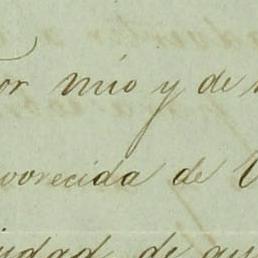 or mio y de
vorecida de
iudad de